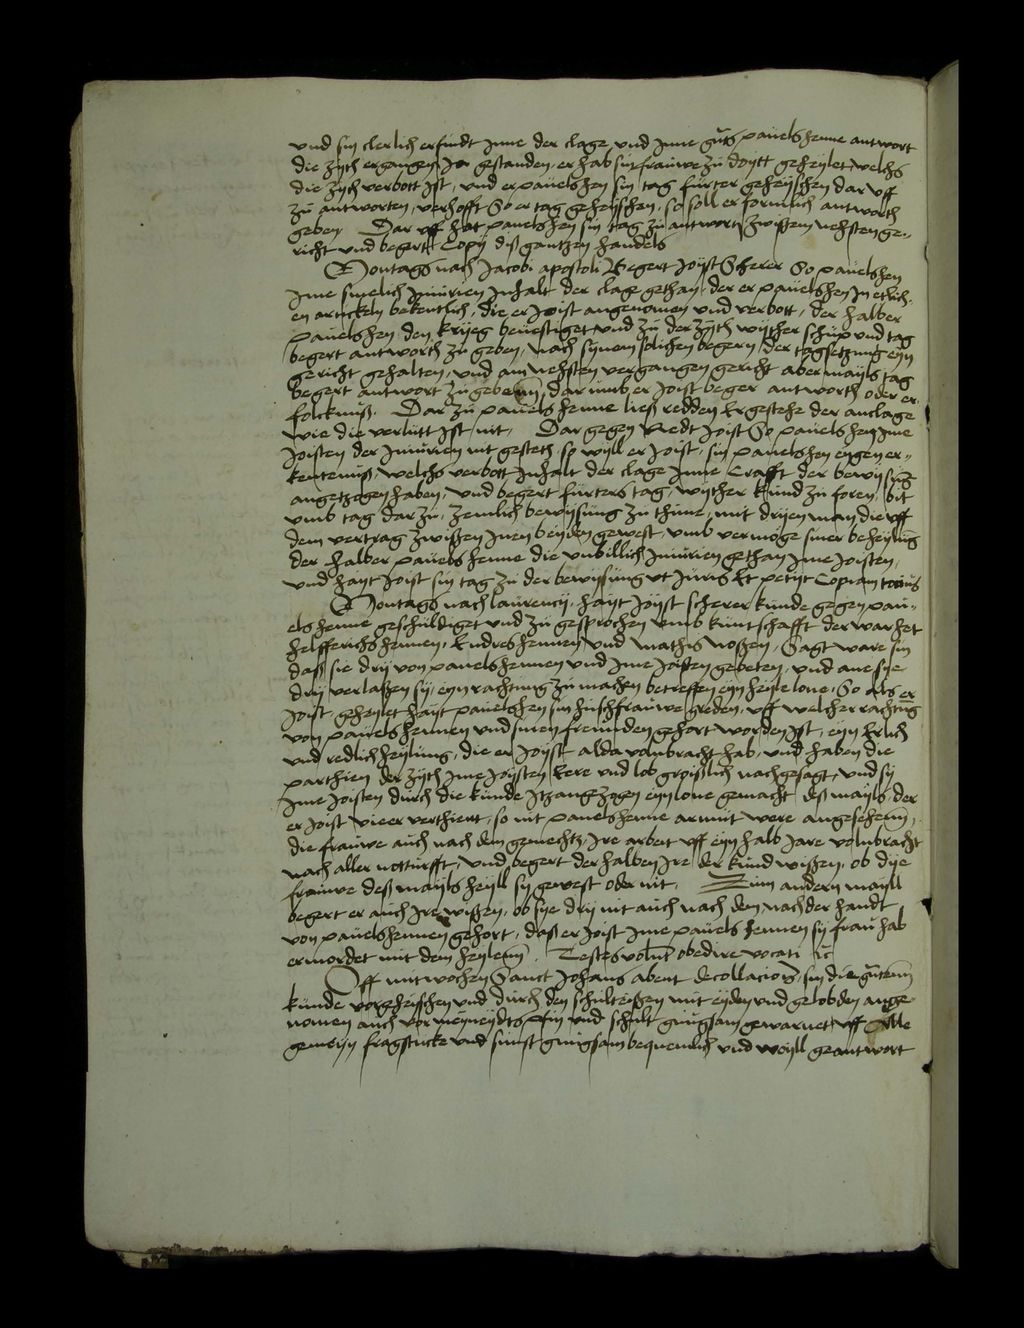 und sin clerlich erfindt Inne der clage und Inne guts pauelshenne antwort
die zijch ergangen Ja gestanden, er hab sin frauwe zu doytt geheylet welchs
die zijch verbott Ist, und er pauelshen sin tag furter geheyschen dar uff
zu antworten, verhofft So er tag geheyschen, so soll er formlich antworth
geben Dar uff hat pauelshen sin tag zu antwort zwissen nehsten ge-
richt und begert Copij diß gantzen handels
Montags nach Jacobi apostoli Begert Joist Scherer So pauelshen
Ime smelich Iniurien Inhalt der clage gethan, der er pauelshen In etlich-
en articklen bekentlich, die er Joist angenomen und verbott, der halber
pauelshen den krijeg beuestiget und zu der zijth wijther schup und tag
begert antworth zu geben, nach synem solichen begern der tagsetzung eyn
gericht gehalten, und am nehsten vergangen gericht abermayls tag
begert antwort zu geben, dar umb er Joist beger antworth oder er-
folckniß. Dar zu pauelshenne ließ redden Er gestehe der anclage
wie die verlutt Ist nit. Dar gegen Redt Joist So pauelshen Ime
Joisten der Iniurien nit gesteth, so wijll er Joist, sin pauelshen eygen er-
kentenuß, welchs verbott Inhalt der clage Inne Crafft der bewijsung
angetzogen haben, und begert furters tag, wijther kund zu foren, bit
umb tag dar zu, zemlich bewijsung zu thune, mit drijen man die uff
dem vertrag zwißen Inen beyden gewest, umb vermoge siner beheylung
der halber pauelshenne die unbillich Iniurien gethan Ime Joisten,
und hayt Joist sin tag zu der bewissung ut Juris Et petijt Copiam totius
Montags nach laurencij, hayt Joist scherer kunde gegen pau-
elshenne geschuldiget und zu gesprochen umb kuntschafft der warhet
helfferichshennen, Endreshennen und Mathis Noßen, Sagt ware sin
daß sie drij von pauelshennen und Ime Joisten gebeten, und ane sye
drij verlaßen sij, eyn rachtung zu machen betreffen eyn heyle lone, So als er
Joist, geheylet hayt pauelshen sin huschfrauwe greden, uff welcher rachtung
von pauelshennen und sinen freunden gehort worden Ist, eyn Erlich
und redlich heylung, die er Joyst alda volnbracht hab, und haben die
parthien der zijth Ime Joysten Eere und lob groißlich nachgesagt, und sij
Ime Joisten durch die kunde Itzangezogen eyn lone gemacht, deß mayls, der
er Joist vieer verthient, so nit pauelshenne armut were angesehenn,
die frauwe auch nach dem gemechtz, Ire arbeit uff eyn halb Jare volnbracht
nach aller notturfft, und begert der halben Ire der kund wißen, ob dye
frauwe deß mayls heyll sij gewest oder nit. Zum andern mayll
begert er auch Ire wißen, ob sye drij nit auch nach dem, nach der handt
von pauelshennen gehort, daß er Joist Ime pauelshennen sij frau hab
ermordet mit dem heylenn. Testes volunt obedire vocati
Uff mitwochen Sanct Johans abent decollacionis, sin die gutenn
kunde vorgeheischen und durch den schulteißen mit eyden und gelobden ange-
nomen auch vor meyneydts pin und schult gnugsam gewarnet uff Alle
gemeyn fragstucke und sunst gnugsam bequemlich und woyll geantwort